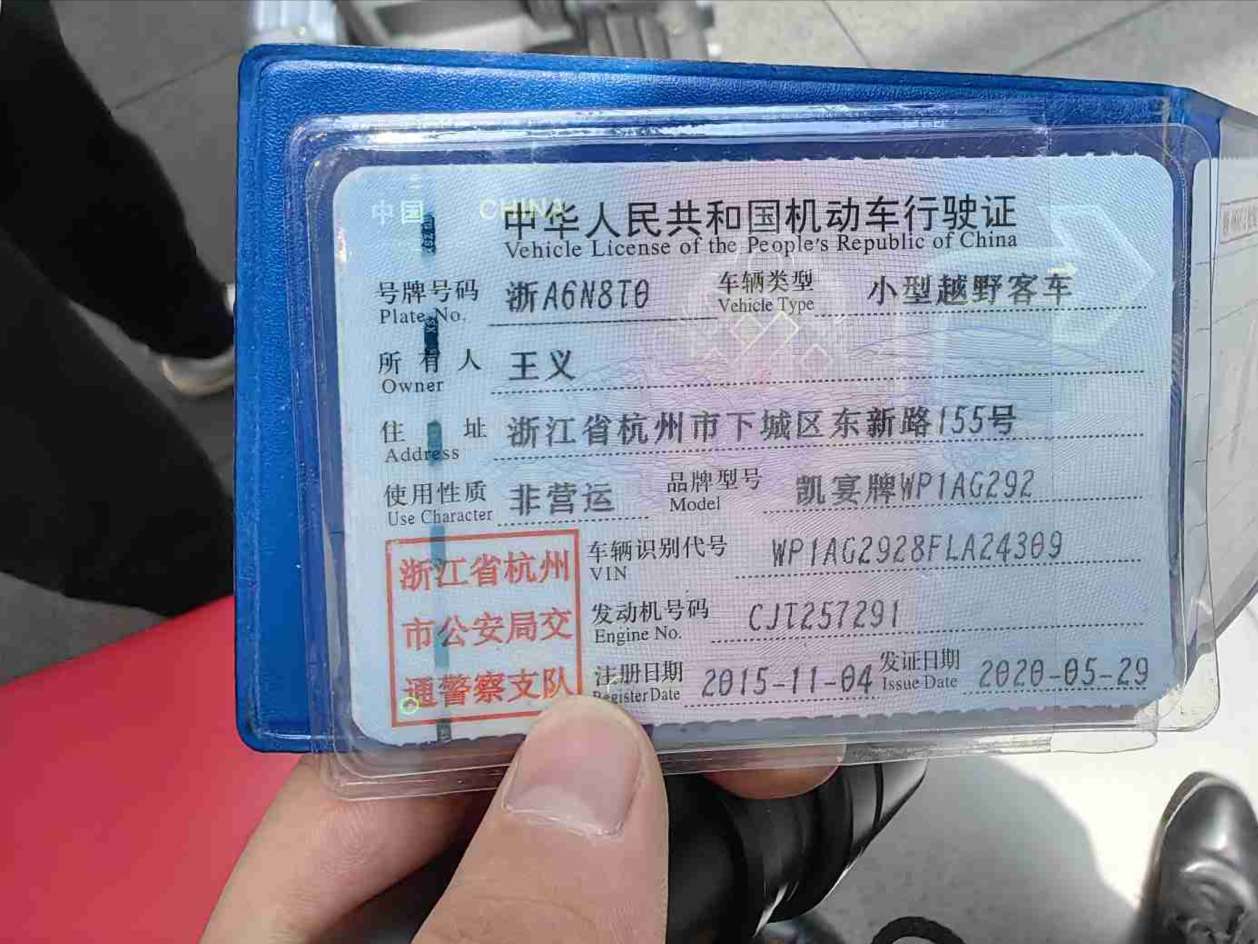 中国 CHINA
中华人民共和国机动车行驶证
Vehicle License of the People's Republic of China
号牌号码 浙A6N8T0 车辆类型 小型越野客车
Plate No. Vehicle Type
所有人 王义
Owner
住址 浙江省杭州市下城区东新路155号
Address
使用性质 非营运 品牌型号 凯宴牌WP1AG292
Use Character Model
浙江省杭州
市公安局交
通警察支队
车辆识别代号 WP1AG2928FLA24309
VIN
发动机号码 CJT257291
Engine No.
注册日期 2015-11-04 发证日期 2020-05-29
Register Date Issue Date